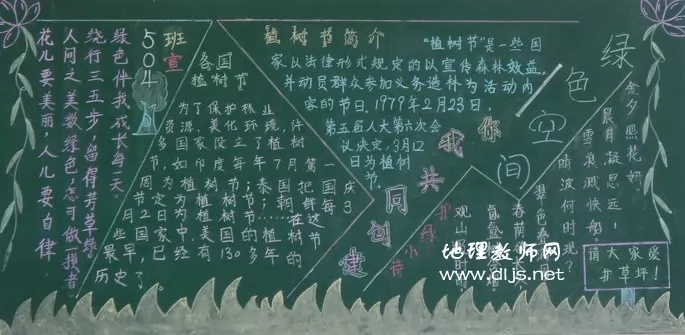 绿色伴我成长每一天。
绕行三五步，留得芳草绿。
人间之美数绿色，怎可做损者
花儿要美丽，人儿要自律
504
班
宣
各国
植树节
为了保护林业
资源，美化环境，许
多国家设立了植树
节，如印度每年7月第一
周为植树节；泰国把国庆
日定为植树节；朝鲜每3
月2日为植树节……在这
些国家中，美国的植树节
最早，已经有130多年的
历史了。
植树节简介
"植树节"是一些国
家以法律形式规定的以宣传森林效益，
并动员群众参加义务造林为活动内
容的节日。1979年2月23日，
第五届人大第六次会
议决定，3月12
日为植树
节。
你我共同创建
绿色空间
护绿小诗
晨月凝思远，
晴波何时现。
请大家爱
护草坪！
地理教师网
www.dljs.net